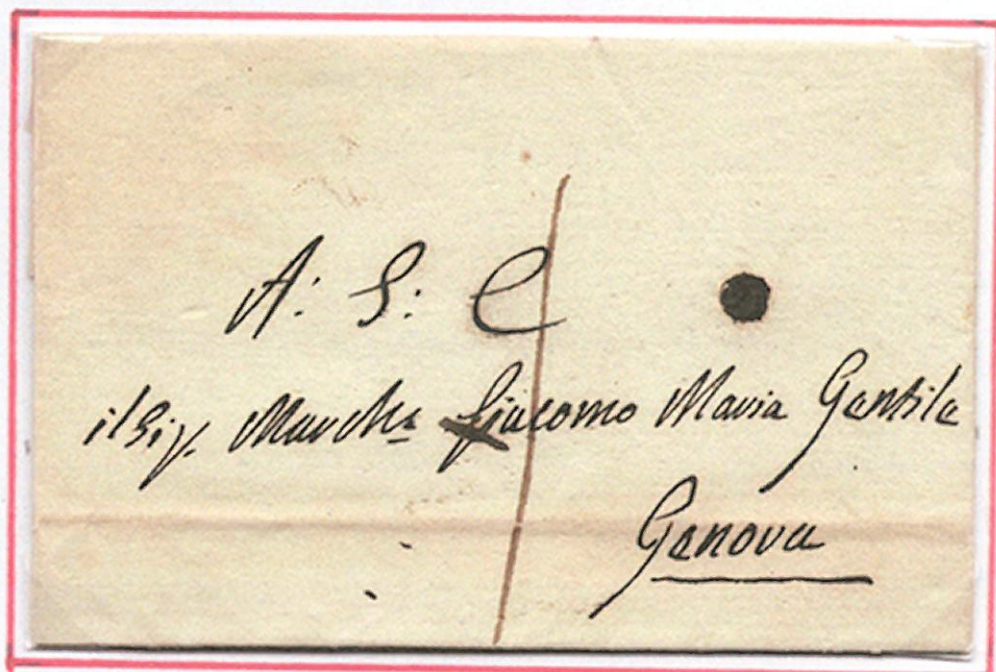 A: S: E
il Sig. March.se Giacomo Maria Gentile
Genova